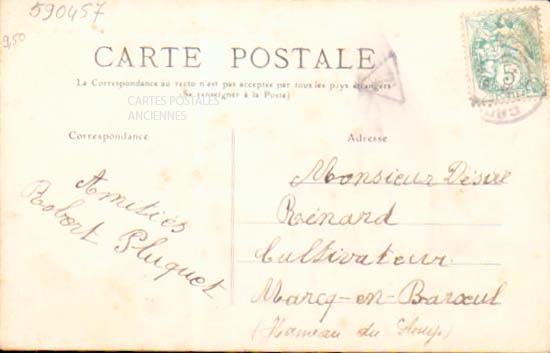 590457
9,50
CARTE POSTALE
La Correspondance au recto n'est pas acceptée par tous les pays étrangers
(Se renseigner à la Poste)
CARTES POSTALES
ANCIENNES
Correspondance
Adresse
Amitiés
Robert Pluquet
Monsieur Désiré
Rénard
Cultivateur
Marcq-en-Barœul
(Hameau du
5